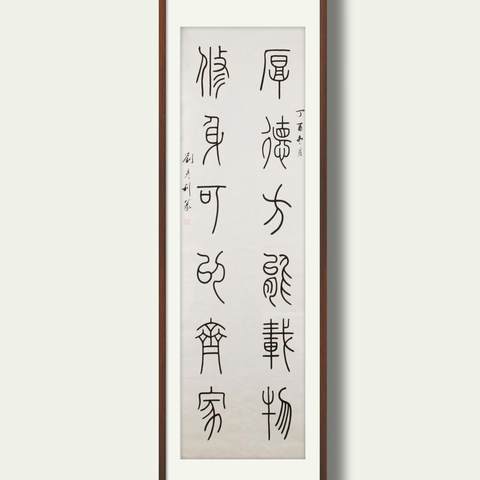 厚德方能載物
丁酉
修身可以齊家
劉